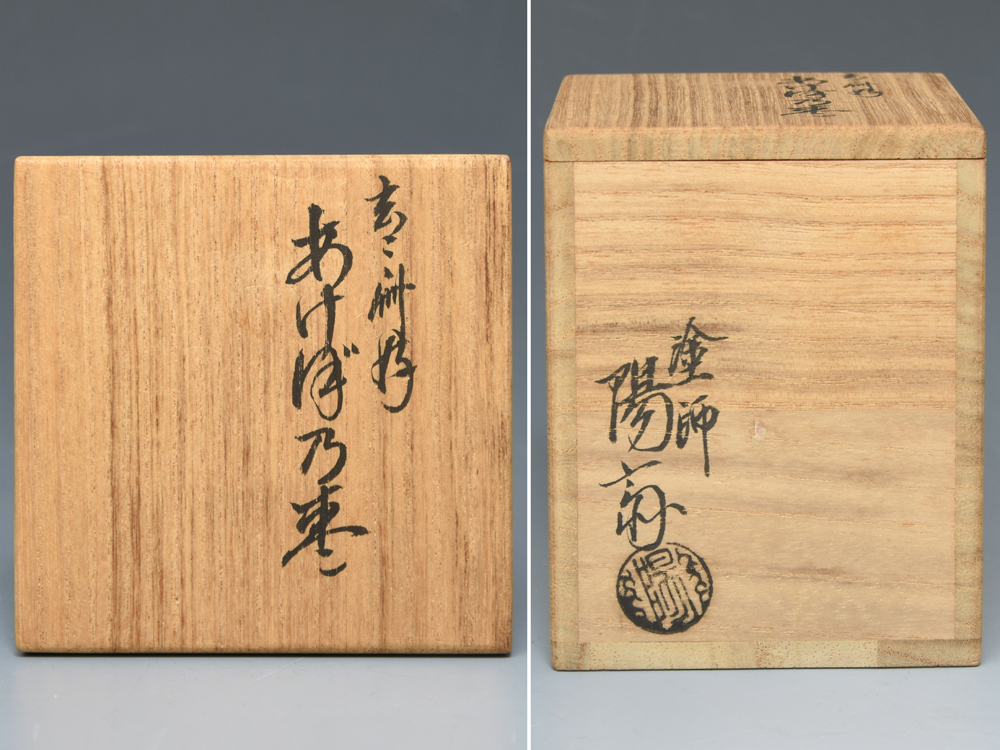 玄々斎好
あけぼ乃棗
塗師
陽斎